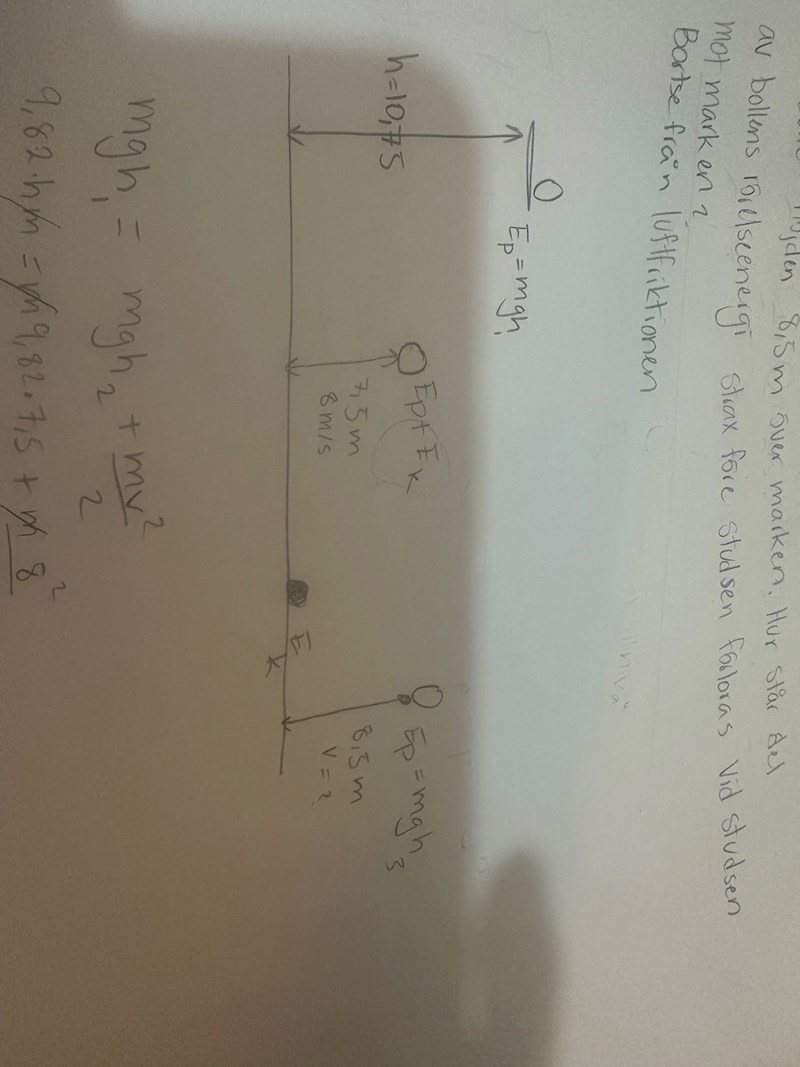 höjden 8,5m över marken. Hur stor del
av bollens rörelseenergi strax före studsen förloras vid studsen
mot marken?
Bortse från luftfriktionen
Ep=mgh₁
h=10,75
Ep+Ek
7,5m
8m/s
Ek
Ep=mgh₃
8,5m
v=?
mgh₁ = mgh₂ + mv²/2
9,82·h m = m 9,82·7,5 + m 8²